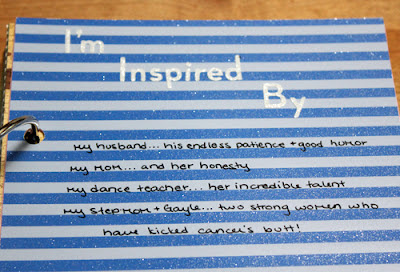 I'm
Inspired
By
My husband... his endless patience + good humor
My Mom... and her honesty
My dance teacher... her incredible talent
My stepmom + Gayle... two strong women who
have kicked cancer's butt!